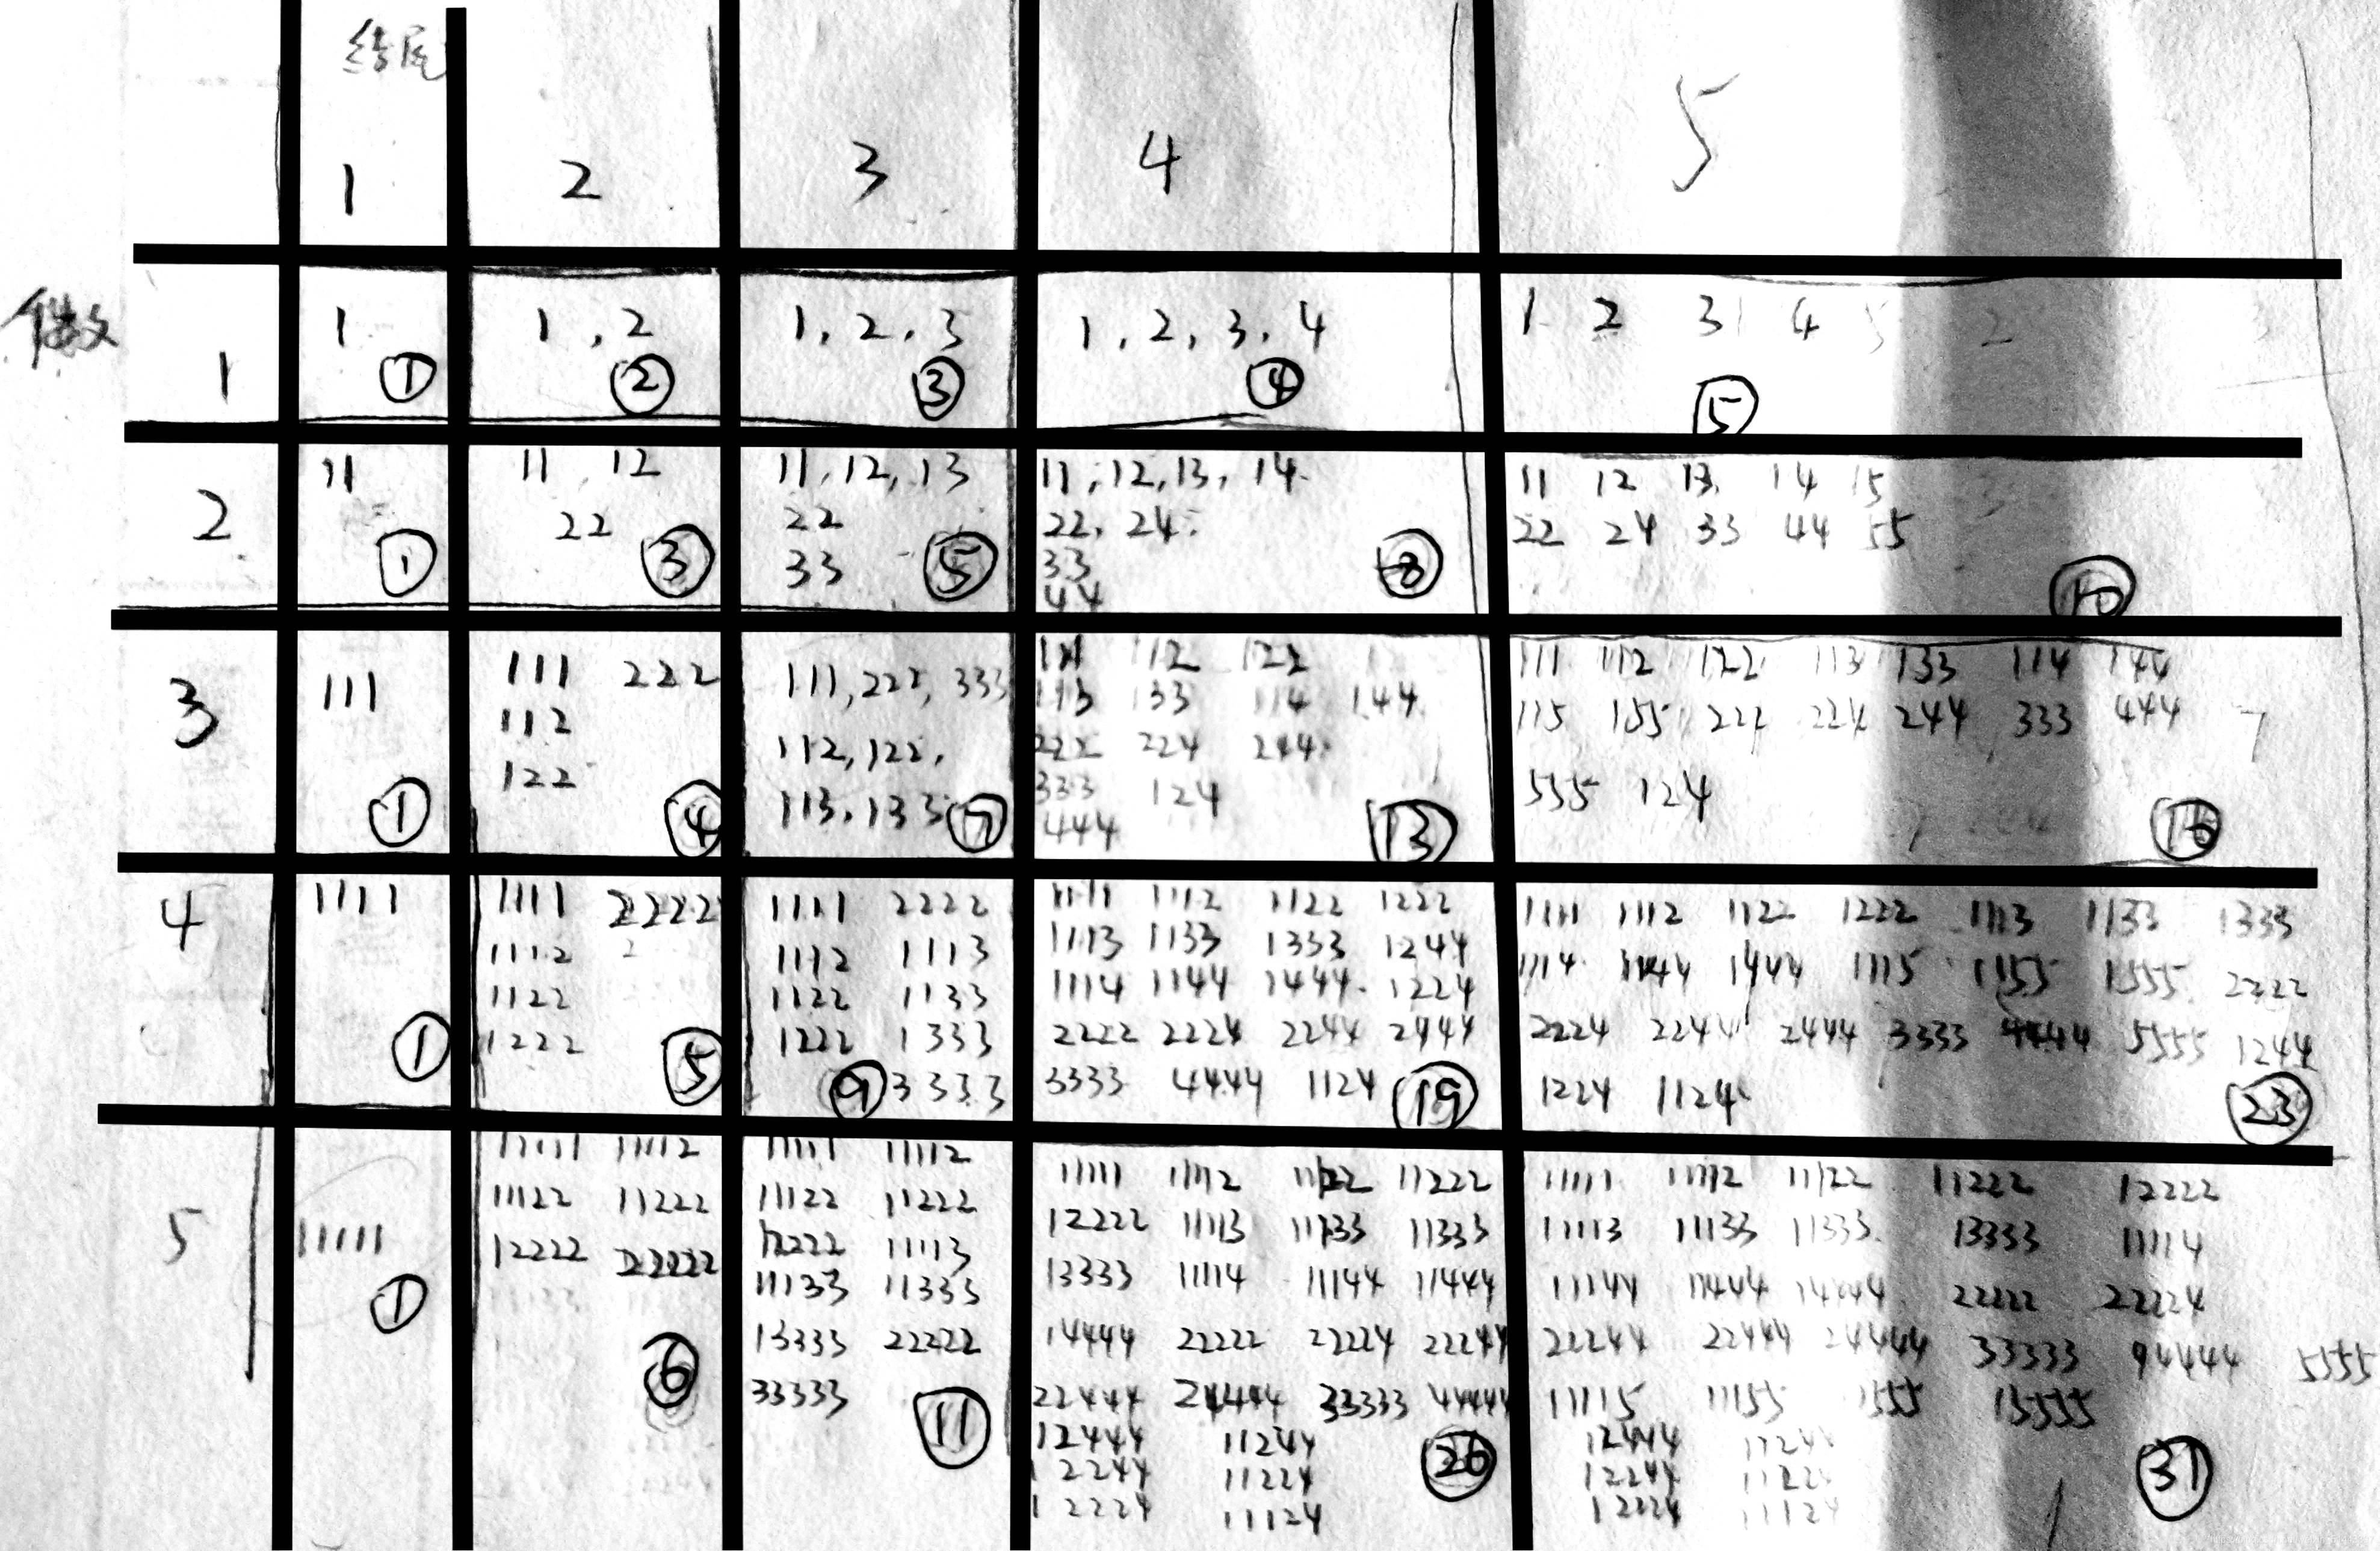 结尾
1 2 3 4 5
个数
1 1 ① 1,2 ② 1,2,3 ③ 1,2,3,4 ④ 1 2 3 4 5 ⑤
2 11 ① 11,12 11,12,13 11,12,13,14 11 12 13 14 15
22 ③ 22 22,24 22 24 33 44 55
33 ⑤ 33 ⑧ ⑩
44
3 111 ① 111 222 111,222,333 111 112 122 111 112 122 113 133 114 144
112 112,122, 113 133 114 144 115 155 222 224 244 333 444
122 ④ 113,133 ⑦ 222 224 244 555 124 ⑯
333 124
444 ⑬
4 1111 ① 1111 2222 1111 2222 1111 1112 1122 1222 1111 1112 1122 1222 1113 1133 1333
1112 1112 1113 1113 1133 1333 1244 1114 1144 1444 1115 1155 1555 2222
1122 1122 1133 1114 1144 1444 1224 2224 2244 2444 3333 4444 5555 1244
1222 ⑤ 1222 1333 2222 2224 2244 2444 1224 1124 ㉓
⑨ 3333 3333 4444 1124 ⑲
5 11111 ① 11111 11112 11111 11112 11111 11112 11122 11222 11111 11112 11122 11222 12222
11122 11222 11122 11222 12222 11113 11133 11333 11113 11133 11333 13333 11114
12222 22222 12222 11113 13333 11114 11144 11444 11144 11444 14444 22222 22224
⑥ 11133 11333 14444 22222 22224 22244 22244 22444 24444 33333 94444 5555
13333 22222 22444 24444 33333 44444 11115 1155 1555 15555
33333 ⑪ 12444 11244 ㉖ 12444 11244
12244 11224 12244 1122
12224 11124 12224 11124 ㉛